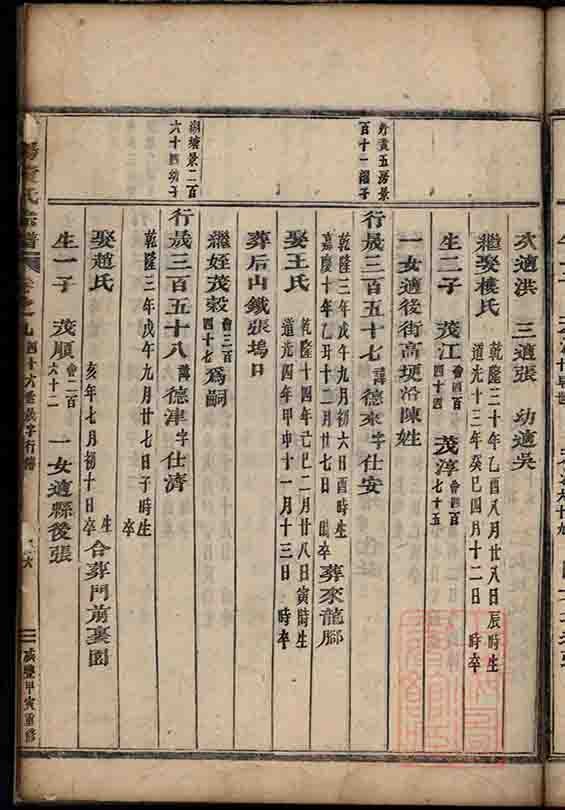 次適洪 三適張 幼適吳
繼娶樓氏 乾隆三十年乙酉八月廿八日辰時生 道光十三年癸巳四月十二日 時卒
生二子 茂江會四百四十四 茂淳會四百七十五
一女適後街高埂沿陳姓
外黃五房景百十一繼子
行晟三百五十七 諱德來字仕安
乾隆三年戊午九月初六日酉時生
嘉慶十年乙丑十二月廿七日 時卒 葬來龍腳
娶王氏 乾隆十四年己巳二月廿八日寅時生 道光四年甲申十一月十三日 時卒
葬后山鐵張塢口
繼姪茂榖會三百四十七為嗣
湖塘景二百六十四幼子
行晟三百五十八 諱德津字仕濟
乾隆三年戊午九月廿七日子時生 卒
娶趙氏 生 亥年七月初十日卒 合葬門前裏園
生一子 茂順會二百六十二 一女適縣後張
氏宗譜 卷之九 四十六世晟字行傳 咸豐甲寅重修